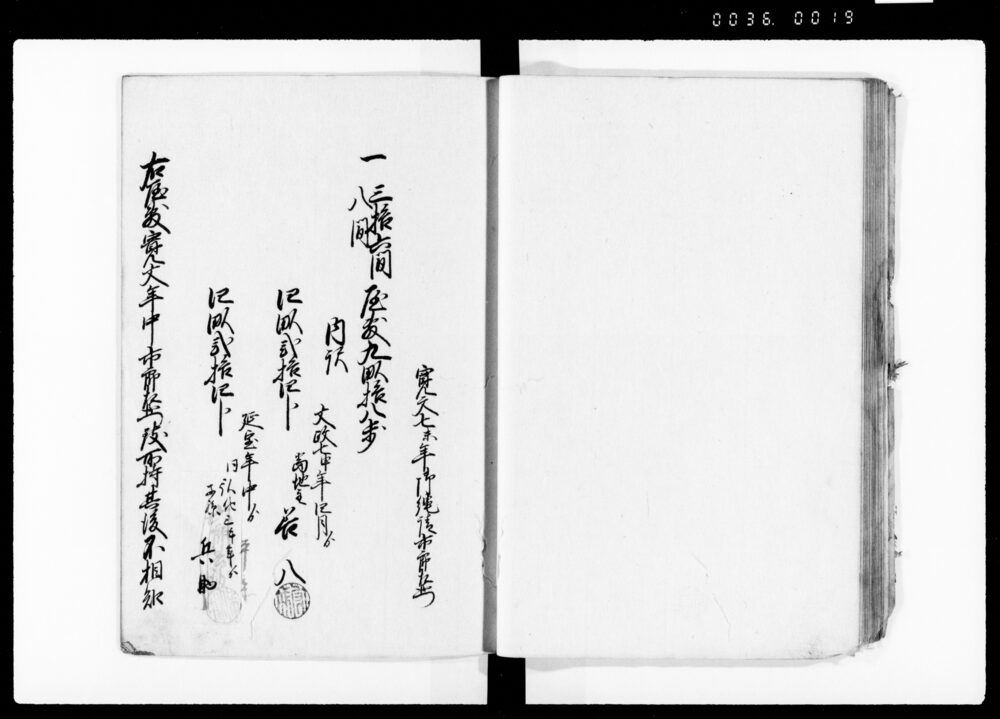 0036. 0019
寛文七未年御縄請市郎兵衛
一 三拾六間
八間
屋敷九畝拾八歩
内訳
文政七申年四月ゟ
四畝弐拾四卜
当地主 谷八
延宝年中ゟ
四畝弐拾四卜
兵助
右屋敷寛文年中市郎兵衛致所持其後不相知